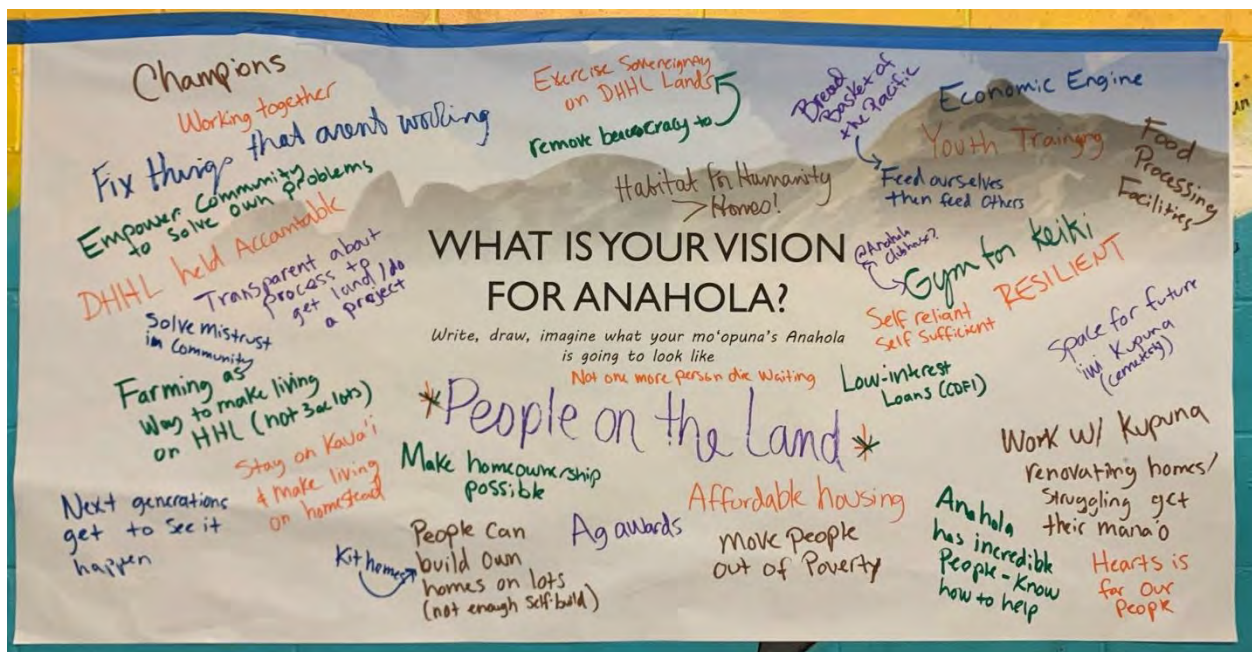 Champions
Working together
Fix things that arent working
Empower Community
to solve own problems
DHHL held Accountable
Transparent about
process to
get land/do
a project
Solve mistrust
in Community
Farming as
way to make living
on HHL (not 3ac lots)
Stay on Kaua'i
& make living
on homestead
Next generations
get to see it
happen
Exercise Sovereignty
on DHHL Lands
remove beaucracy to
Habitat for Humanity
> Homes!
WHAT IS YOUR VISION
FOR ANAHOLA?
Write, draw, imagine what your mo'opuna's Anahola
is going to look like
Not one more person die waiting
*People on the Land*
Make homeownership
possible
Kit homes
People can
build own
homes on lots
(not enough self-build)
Ag awards
Affordable housing
move people
out of Poverty
Bread
Basket of
the Pacific
Feed ourselves
then feed others
Economic Engine
Youth Traingng
Food
Processing
Facilities
@Anahola
Clubhouse?
Gym for Keiki
RESILIENT
Self reliant
Self Sufficient
Low-interest
Loans (CDFI)
Space for future
'iwi Kupuna
(cemetery)
Work w/ Kupuna
renovating homes/
Struggling get
their mana'o
Anahola
has incredible
People - Know
how to help
Hearts is
for Our
People